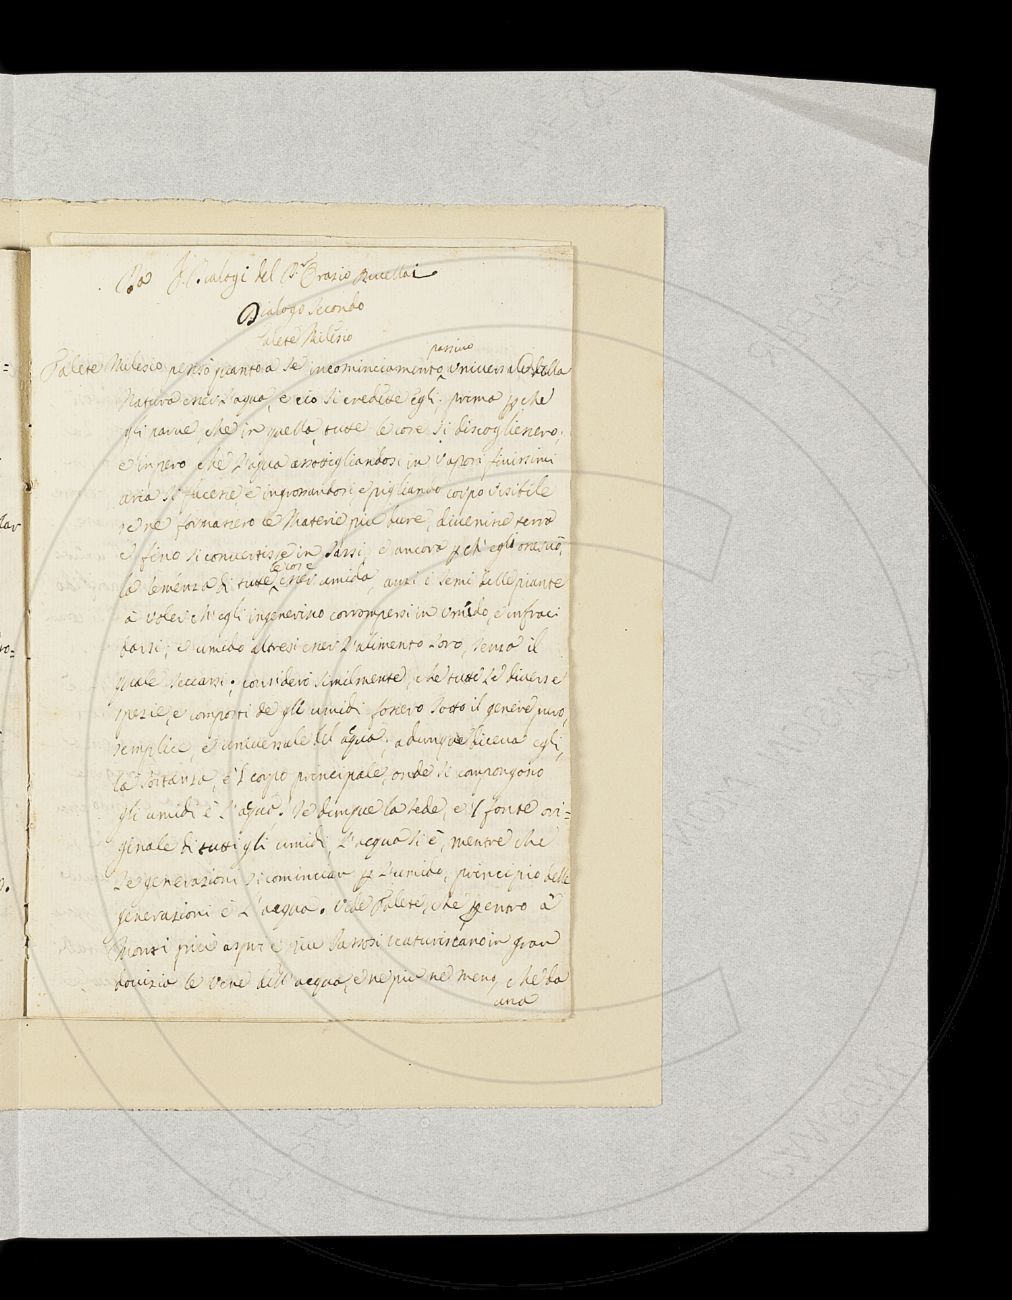 Dialogi del Sr. Orazio Rucellai
Dialogo Secondo
Talete Milesio
passivo
Talete Milesio pensò quanto a sè incominciamento universale della
Natura esser l'aqua, e ciò si credette egli, prima perche
gli parve, che in quella tutte le cose si discogliessero,
e impero che l'aqua assottigliandosi in vapori finissimi
aria si facesse, e ingrossandosi e pigliando corpo visibile
se ne formassero le Materie più dure, divenisse terra
e fino si convertisse in sassi, e ancora perch' egli osservò,
le cose
la semenza di tutte esser umida, anzi i semi delle piante
à voler ch'egli ingenerino corrompersi in umido, e infraci
darsi; e umido altresi esser l'alimento loro, senza il
quale seccarsi; considerò similmente, che tutte le diverse
spezie, e composti de gli umidi fossero sotto il genere puro,
semplice, e universale del aqua; adunque diceva egli,
la sostanza, e 'l corpo principale, onde si compongono
gli umidi è l'aqua. Se dunque la sede, e 'l fonte ori=
ginale di tutti gli umidi, l'acqua si è, mentre che
le generazioni si cominciar per l'umido, principio delle
generazioni è l'acqua. Vide Talete, che per entro à
Monti più aspri e più sassosi scaturiscano in gran
dovizia le vene dell'acqua, e ne più ne meno, che da
una